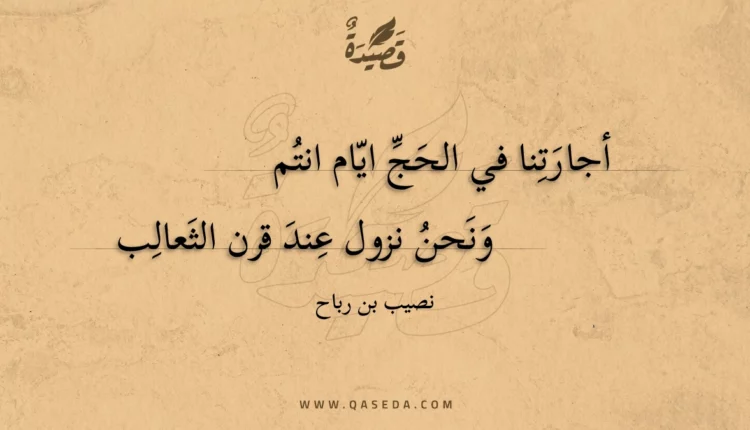 قَصِيدَةٌ
أجارَتِنا في الحَجِّ ايّام انتُم
وَنَحنُ نزول عِندَ قرن الثَعالِب
نصيب بن رباح
WWW.QASEDA.COM